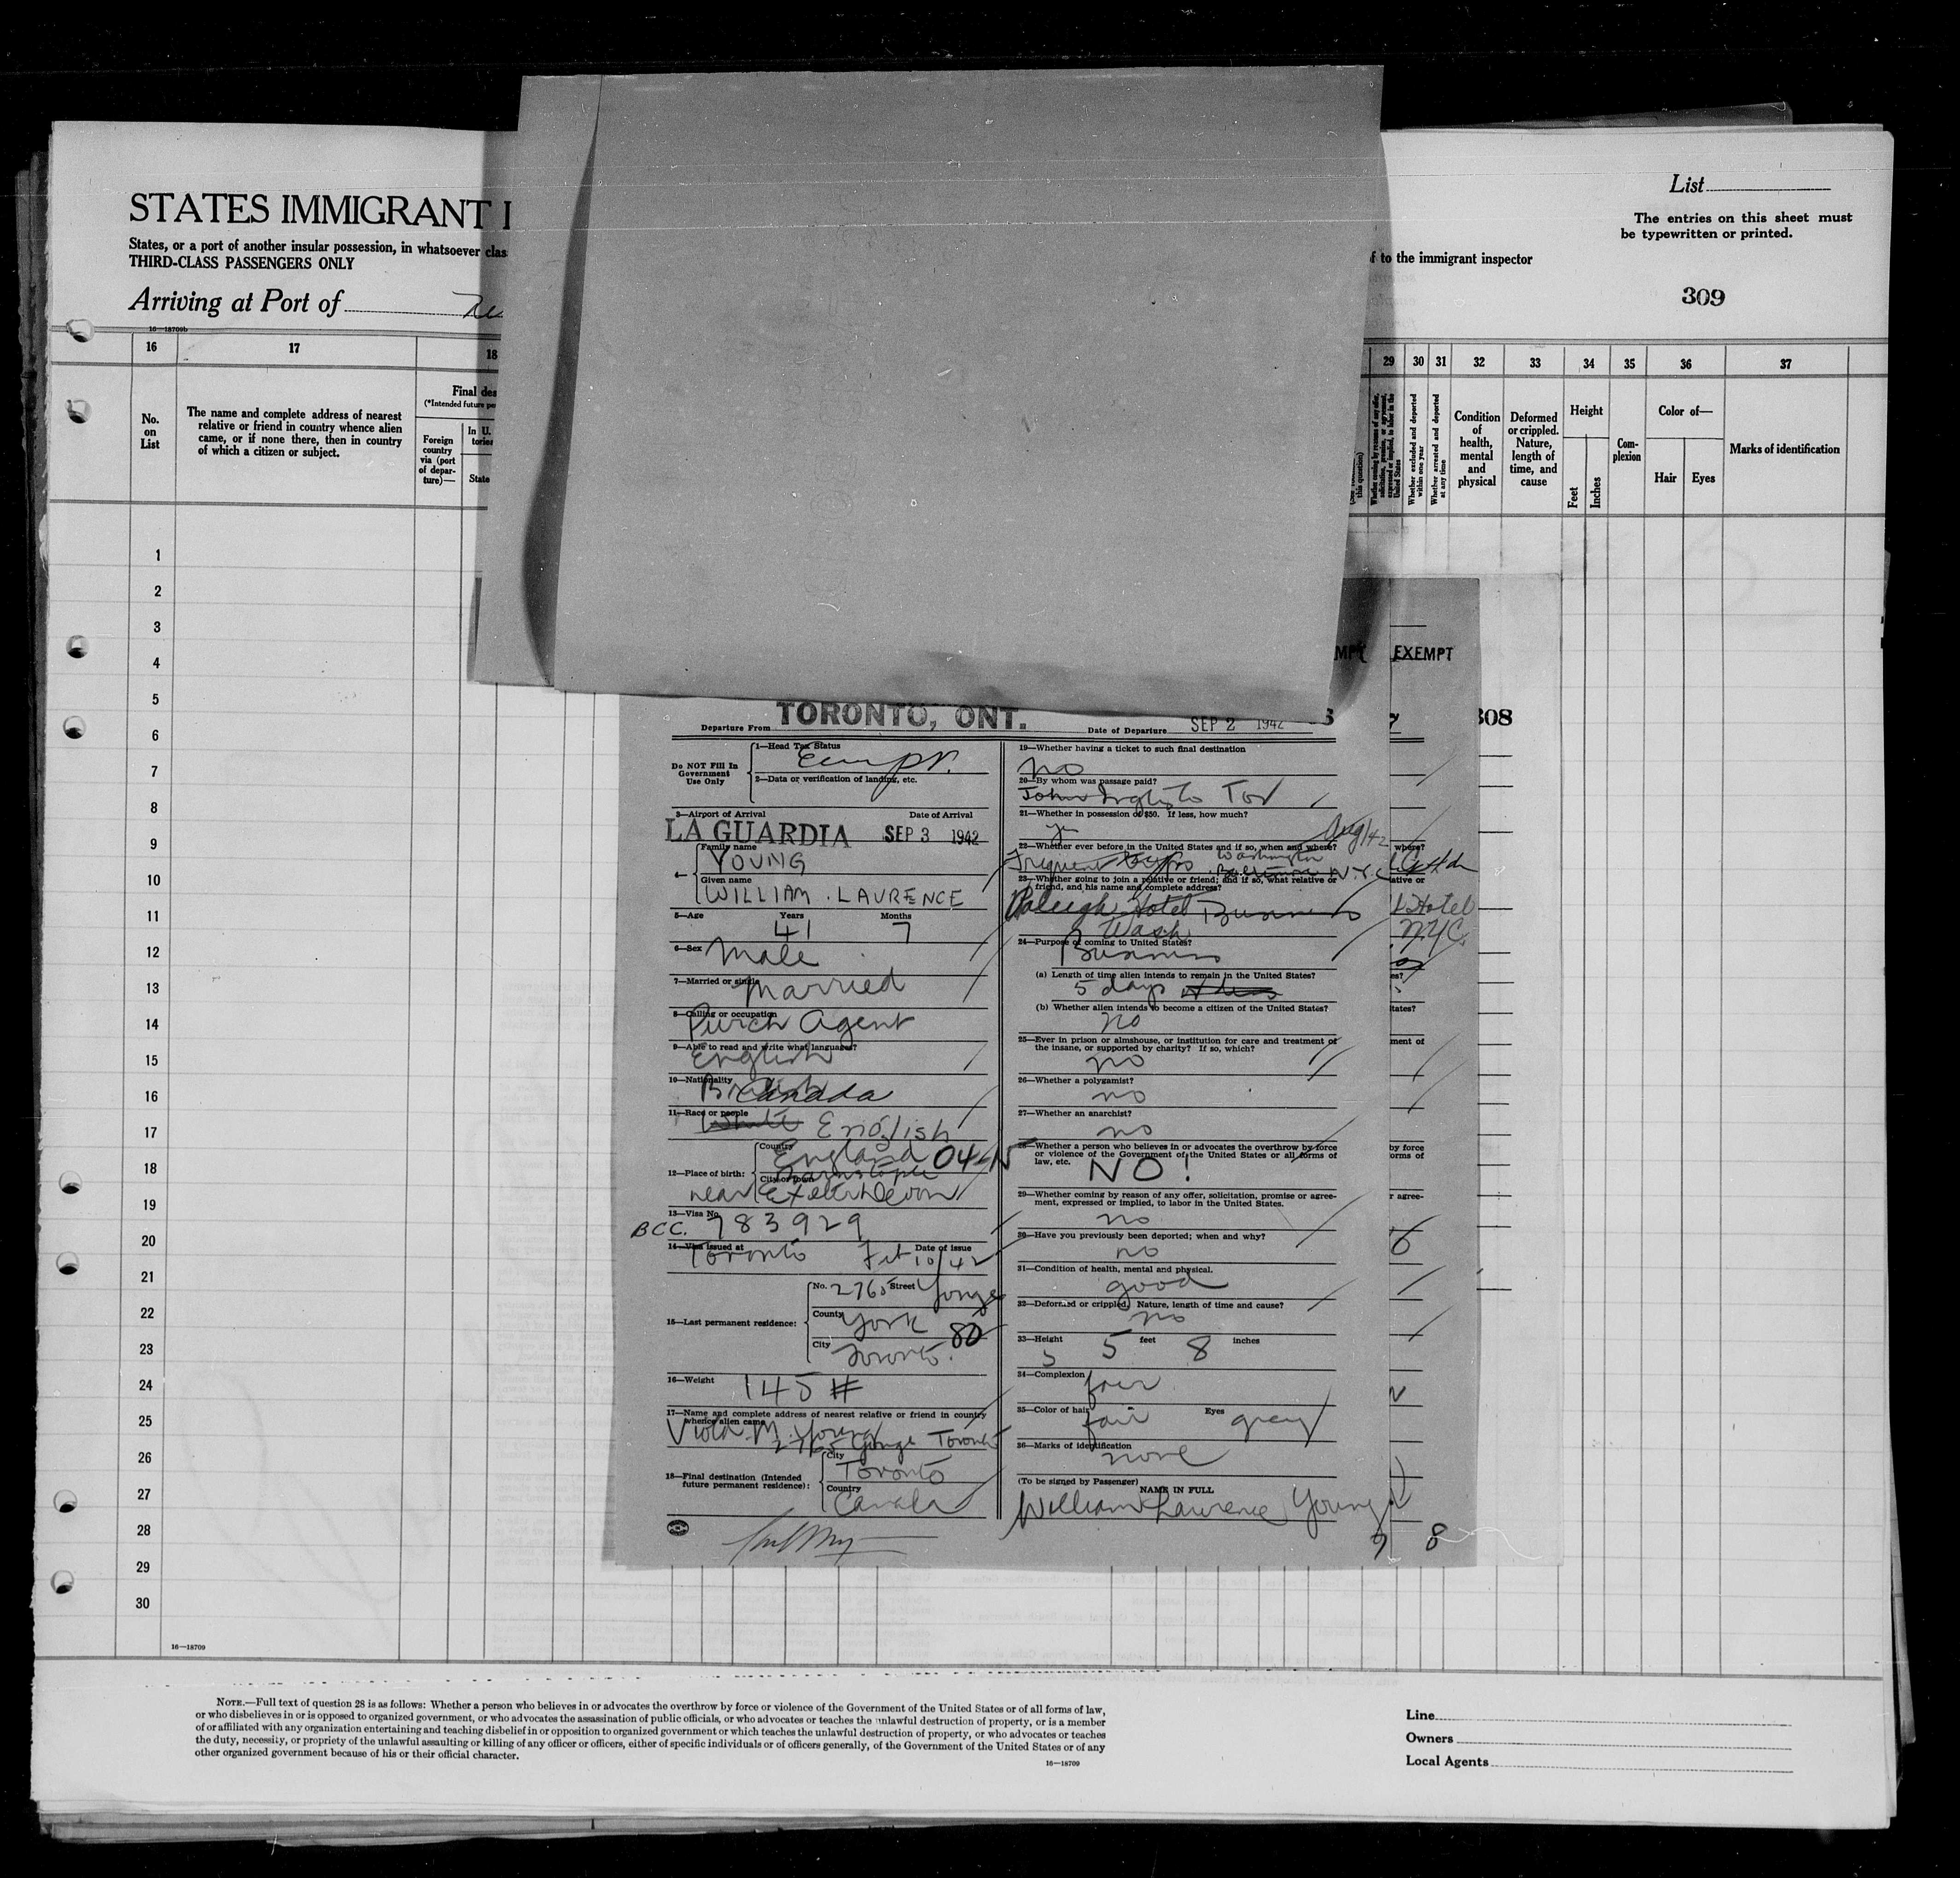 STATES IMMIGRANT I
States, or a port of another insular possession, in whatsoever clas
THIRD-CLASS PASSENGERS ONLY
Arriving at Port of
16—18709b
List
The entries on this sheet must
be typewritten or printed.
f to the immigrant inspector
309
16 17 18 29 30 31 32 33 34 35 36 37
No. on List
The name and complete address of nearest
relative or friend in country whence alien
came, or if none there, then in country
of which a citizen or subject.
Final des
(*Intended future pe
Foreign country via (port of depar-ture)—
In U.
State
this question)
Whether excluded and deported within one year
Whether arrested and deported at any time
Condition of health, mental and physical
Deformed or crippled. Nature, length of time, and cause
Height
Feet
Inches
Com-plexion
Color of—
Hair
Eyes
Marks of identification
1
2
3
4
5
6
7
8
9
10
11
12
13
14
15
16
17
18
19
20
21
22
23
24
25
26
27
28
29
30
EXEMPT
308
Departure From TORONTO, ONT.
Date of Departure SEP 2 1942
Do NOT Fill In
Government
Use Only
1—Head Tax Status
2—Data or verification of landing, etc.
3—Airport of Arrival Date of Arrival
LA GUARDIA SEP 3 1942
4—
Family name
YOUNG
Given name
WILLIAM . LAURENCE
5—Age Years Months
41 7
6—Sex Male
7—Married or single Married
8—Calling or occupation
Purch Agent
9—Able to read and write what languages?
English
10—Nationality
British Canada
11—Race or people
White English
12—Place of birth:
Country
England
City or town
Barnstaple
near Exeter Devon
13—Visa No.
BCC. 783929
14—Visa issued at Date of issue
Toronto Feb 10/42
15—Last permanent residence:
No. 2765 Street Yonge
County York 80
City Toronto.
16—Weight 145 #
17—Name and complete address of nearest relative or friend in country
whence alien came
Viola M. Young
2765 Yonge Toronto
18—Final destination (Intended
future permanent residence):
City
Toronto
Country
Canada
19—Whether having a ticket to such final destination
no
20—By whom was passage paid?
John Inglis Co Tor
21—Whether in possession of $50. If less, how much?
Aug/42
22—Whether ever before in the United States and if so, when and where?
Frequent Washington
Baltimore N.Y.
23—Whether going to join a relative or friend; and if so, what relative or
friend, and his name and complete address?
Raleigh Hotel Business
Wash
24—Purpose of coming to United States?
Business
(a) Length of time alien intends to remain in the United States?
5 days
(b) Whether alien intends to become a citizen of the United States?
no
25—Ever in prison or almshouse, or institution for care and treatment of
the insane, or supported by charity? If so, which?
no
26—Whether a polygamist?
no
27—Whether an anarchist?
no
28—Whether a person who believes in or advocates the overthrow by force
or violence of the Government of the United States or all forms of
law, etc.
NO!
29—Whether coming by reason of any offer, solicitation, promise or agree-
ment, expressed or implied, to labor in the United States.
no
30—Have you previously been deported; when and why?
no
31—Condition of health, mental and physical.
good
32—Deformed or crippled. Nature, length of time and cause?
no
33—Height 5 feet 8 inches
34—Complexion
fair
35—Color of hair Eyes
fair grey
36—Marks of identification
none
(To be signed by Passenger)
NAME IN FULL
William Lawrence Young
where?
ative or
Hotel
NYC.
es?
tates?
ment of
by force
orms of
r agree-
9 8
16—18709
NOTE.—Full text of question 28 is as follows: Whether a person who believes in or advocates the overthrow by force or violence of the Government of the United States or of all forms of law,
or who disbelieves in or is opposed to organized government, or who advocates the assassination of public officials, or who advocates or teaches the unlawful destruction of property, or is a member
of or affiliated with any organization entertaining and teaching disbelief in or opposition to organized government or which teaches the unlawful destruction of property, or who advocates or teaches
the duty, necessity, or propriety of the unlawful assaulting or killing of any officer or officers, either of specific individuals or of officers generally, of the Government of the United States or of any
other organized government because of his or their official character.
16—18709
Line
Owners
Local Agents